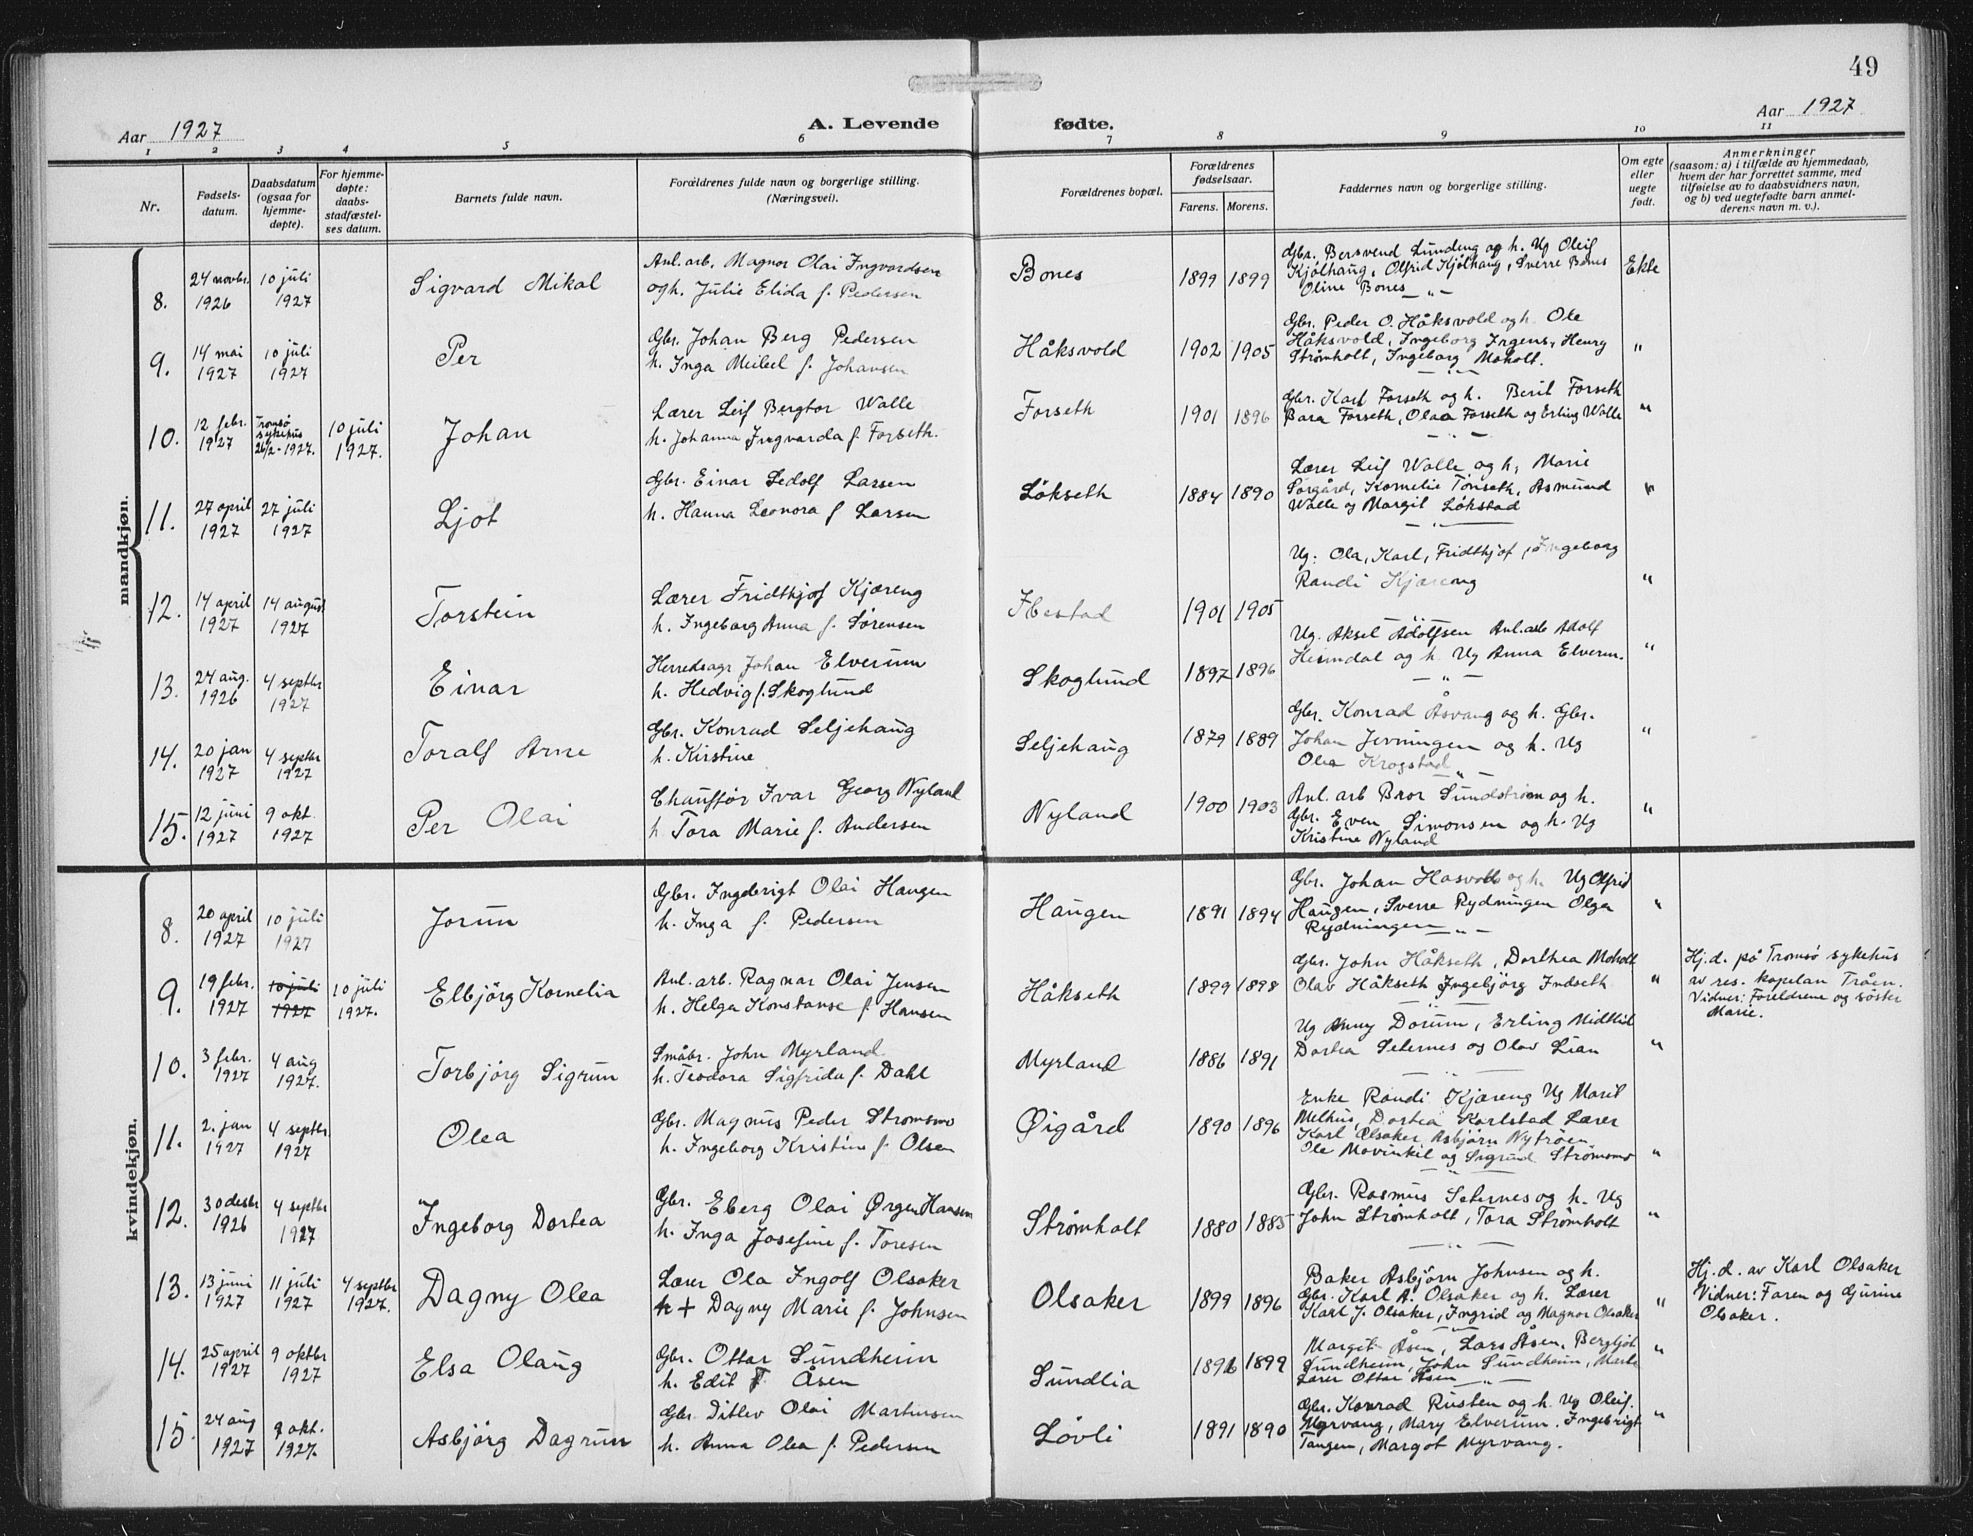 49
Aar 1927
A. Levende
fødte.
Aar 1927
1 2 3 4 5 6 7 8 9 10 11
Nr.
Fødsels-
datum.
Daabsdatum
(ogsaa for
hjemme-
døpte).
For hjemme-
døpte:
daabs-
stadfæstel-
ses datum.
Barnets fulde navn.
Forældrenes fulde navn og borgerlige stilling.
(Næringsvei).
Forældrenes bopæl.
Forældrenes
fødselsaar.
Farens. Morens.
Faddernes navn og borgerlige stilling.
Om egte
eller
uegte
født.
Anmerkninger
(saasom: a) i tilfælde av hjemmedaab,
hvem der har forrettet samme, med
tilføielse av to daabsvidners navn,
og b) ved uegtefødte barn anmel-
derens navn m. v.).
mandkjøn.
8. 24 novbr. 1926 10 juli 1927 Sigvard Mikal
Anl. arb. Magnor Olai Ingvardsen
og h. Julie Elida f. Pedersen
Bones 1899 1899
Gbr. Bersvend Lundeng og h. Ug Oleif
Kjølhaug, Olfrid Kjølhaug, Sverre Bones
Oline Bones
Ekte
9. 14 mai 1927 10 juli 1927 Per
Gbr. Johan Berg Pedersen
h. Inga Meibel f. Johansen
Håksvold 1902 1905
Gbr. Peder O. Håksvold og h. Ole
Håksvold, Ingeborg Irgens, Henry
Strømholt, Ingeborg Moholt.
"
10. 12 febr. 1927 Tromsö sykehus 26/2-1927. 10 juli 1927. Johan
Lærer Leif Bergtor Walle
h. Johanna Ingvarda f. Forseth.
Forseth 1901 1896
Gbr. Karl Forseth og h. Berit Forseth
Bara Forseth, Olaa Forseth og Erling Walle
"
11. 27 april 1927 27 juli 1927 Ljot
Gbr. Einar Sedolf Larsen
h. Hanna Leonora f Larsen
Løkseth 1884 1890
Lærer Leif Walle og h, Marie
Sørgård, Kornelie Tønseth, Asmund
Walle og Margit Løkstad
"
12. 14 april 1927 14 august 1927 Torstein
Lærer Fridthjof Kjæreng
h. Ingeborg Anna f. Sørensen
Ibestad 1901 1905
Ug. Ola, Karl, Fridthjof, Ingeborg
Randi Kjæreng
"
13. 24 aug. 1926 4 septbr 1927 Einar
Herredsagr Johan Elverum
h. Hedvig f. Skoglund
Skoglund 1897 1896
Ug. Aksel Adolfsen Anl. arb Adolf
Heimdal og h. Ug Anna Elverum.
"
14. 20 jan 1927 4 septbr 1927 Toralf Arne
Gbr. Konrad Seljehaug
h. Kirstine
Seljehaug 1879 1889
Gbr. Konrad Åsvang og h. Gbr.
Johan Jenningen og h. Ug
Olea Krogstad
"
15. 12 juni 1927 9 okt. 1927 Per Olai
Chauffør Ivar Georg Nyland
h. Tora Marie f. Andersen
Nyland 1900 1903
Anl. arb Bror Sundstrøm og h.
Gbr. Even Simonsen og h. Ug
Kristine Nyland
"
kvindekjøn.
8. 20 april 1927 10 juli 1927 Jorun
Gbr. Ingebrigt Olai Haugen
h. Inga f. Pedersen
Haugen 1891 1894
Gbr. Johan Hasvold og h. Ug Olfrid
Haugen, Sverre Rydningen Olga
Rydningen
"
9. 19 febr. 1927 10 juli 1927 10 juli 1927. Elbjörg Kornelia
Anl. arb. Ragnar Olai Jensen
h. Helga Konstanse f Hansen
Håkseth 1899 1898
Gbr. John Håkseth, Dorthea Moholt
Olav Håkseth Ingebjörg Indseth
"
Hj. d. på Tromsø sykehus
av res. kapelan Tråen.
Vidner: Foreldrene og söster
Marie.
10. 3 febr. 1927 4 aug 1927. Torbjörg Sigrun
Småbr. John Myrland
h. Teodora Sigfrida f. Dahl
Myrland 1886 1891
Ug Anny Dorum, Erling Midtlid
Dortea Seternes og Olav Lian
"
11. 2. jan 1927 4 septbr. 1927 Olea
Gbr. Magnus Peder Strømsmo
h. Ingeborg Kristine f. Olsen
Øigård 1890 1896
Enke Randi Kjæreng Ug Marit
Melhus, Dortea Karlstad Lærer
Karl Olsaker, Asbjörn Nytrøen
Ole Movinkil og Sigrud Strømsmo
"
12. 30 desbr 1926 4 septbr 1927 Ingeborg Dortea
Gbr. Eberg Olai Ørgen Hansen
h. Inga Josefine f. Toresen
Strømholt 1880 1885
Gbr. Rasmus Seternes og h. Ug
John Strømholt, Tora Strømholt
"
13. 13 juni 1927 11 juli 1927 4 septbr 1927. Dagny Olea
Lærer Ola Ingolf Olsaker
h + Dagny Marie f. Johnsen
Olsaker 1899 1896
Baker Asbjörn Johnsen og h.
Gbr. Karl A. Olsaker og h. Lærer
Karl J. Olsaker, Ingrid og Magnor Olsaker
"
Hj. d. av Karl Olsaker
Vidner: Faren og Gurine
Olsaker.
14. 25 april 1927 9 oktbr 1927 Elsa Olaug
Gbr. Ottar Sundheim
h. Edit f Åsen
Sundlia 1896 1899
Margit Åsen, Lars Åsen, Bergljot
Sundheim, John Sundheim,
Lærer Ottar Åsen
"
15. 24 aug 1927 9 okt. 1927. Asbjörg Dagrun
Gbr Ditlev Olai Martinsen
h. Anna Olea f. Pedersen
Løvli 1891 1890
Gbr. Konrad Rusten og h. Ug Oleif.
Myrvang, Mary Elverum, Ingebrigt
Tangen, Margot Myrvang.
"